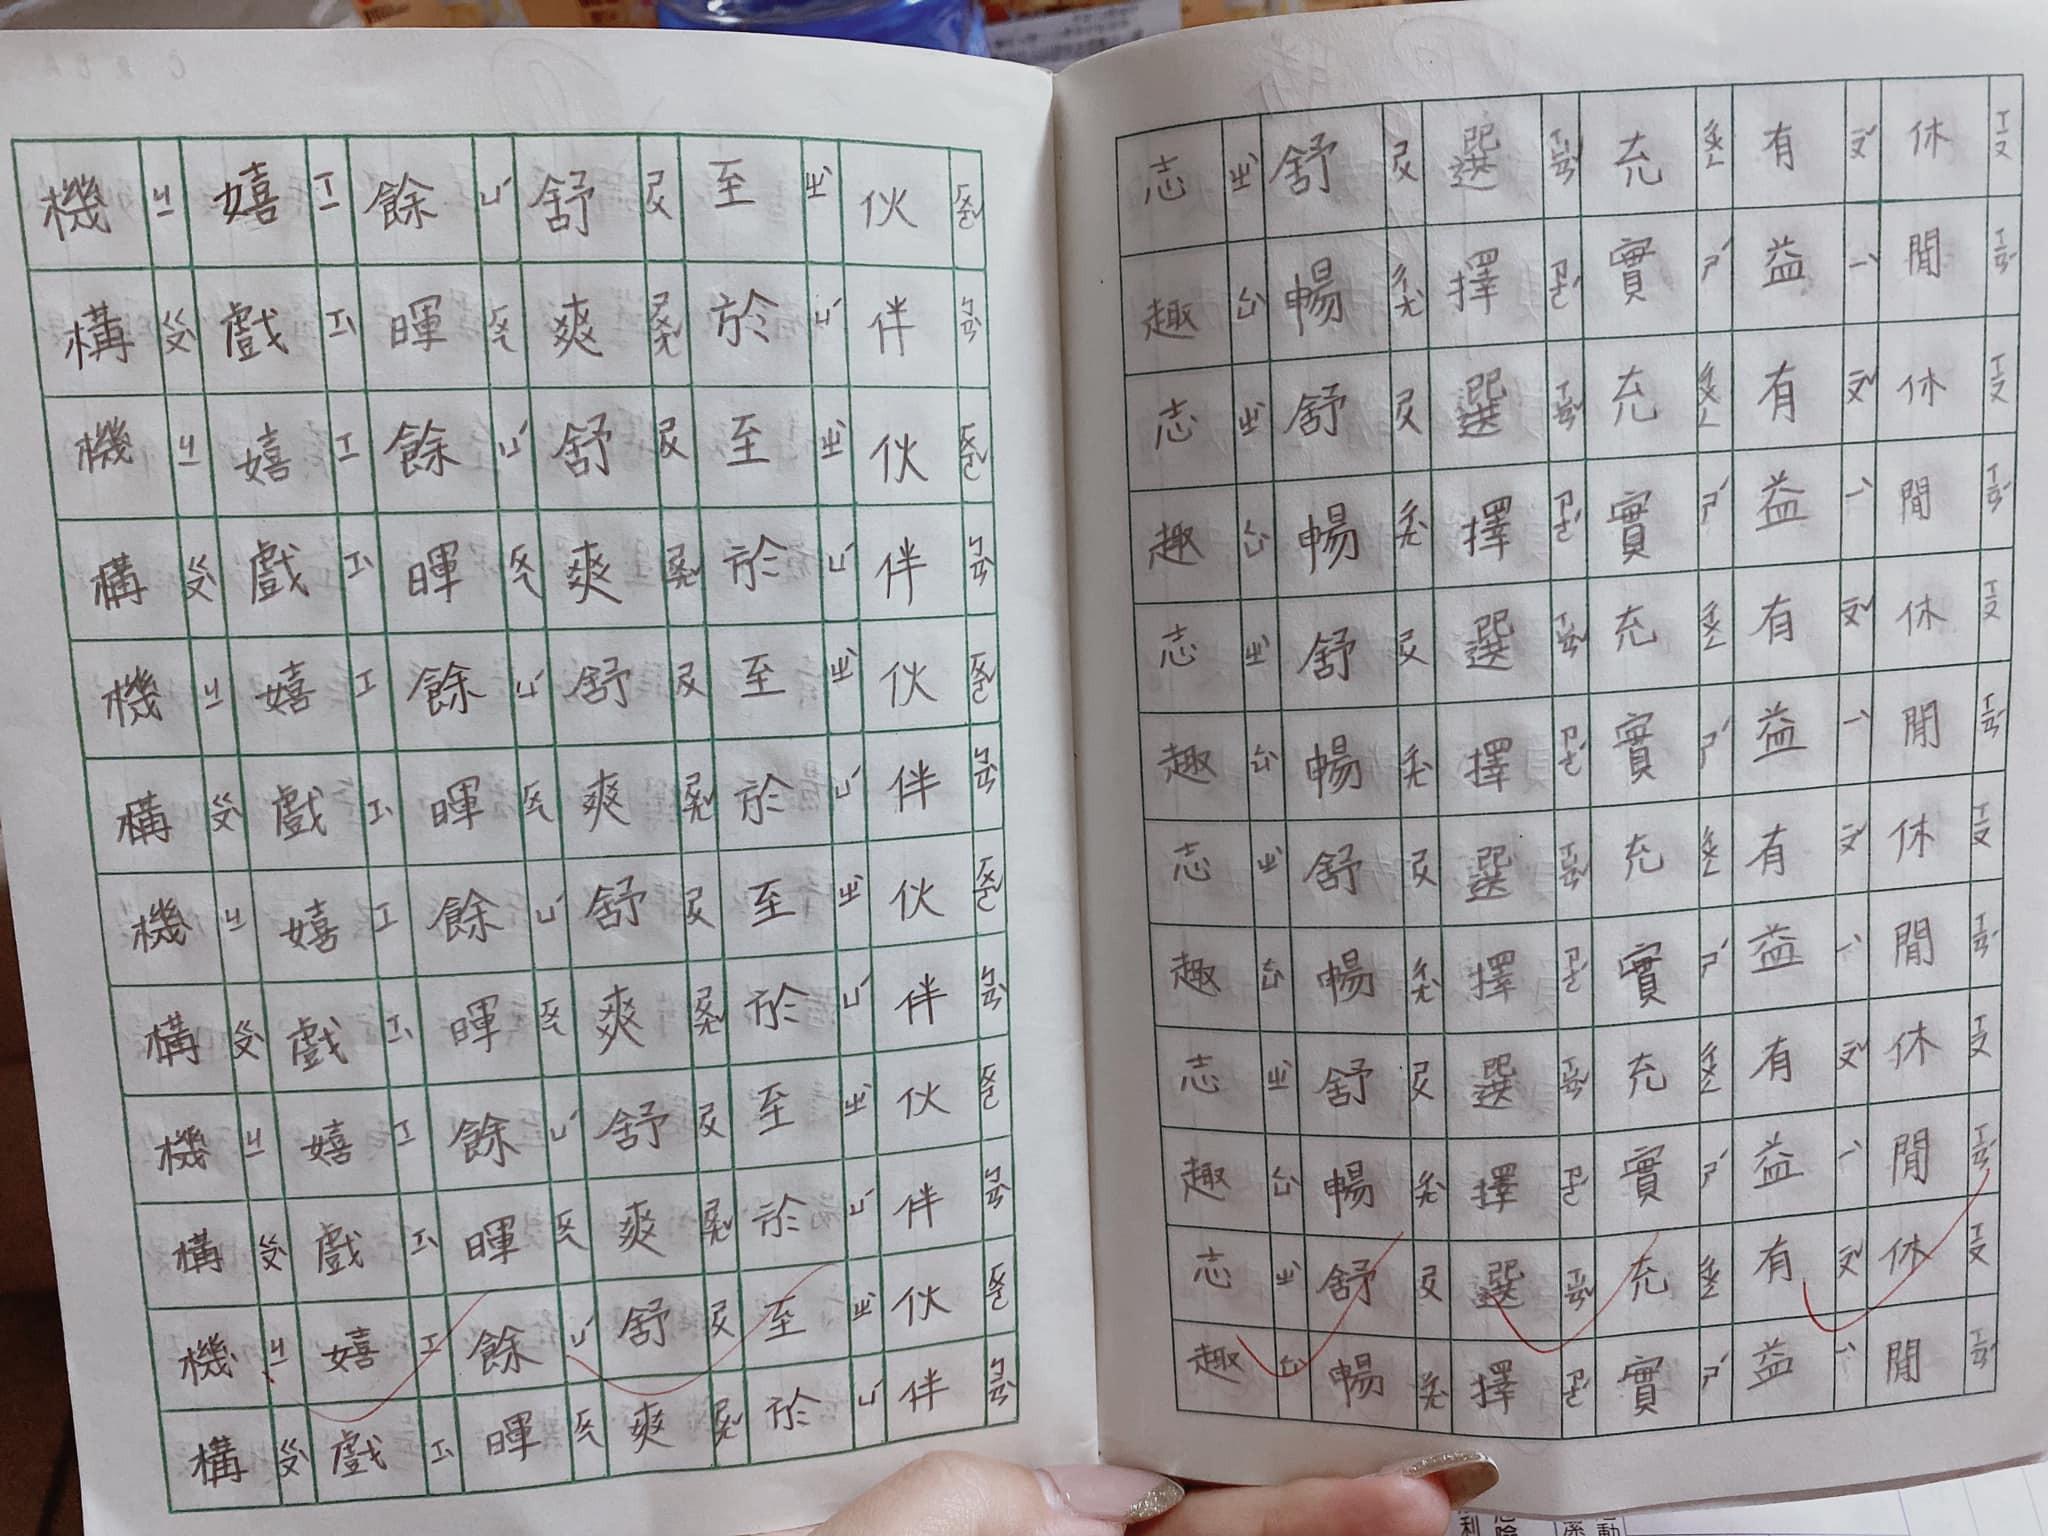 休ㄒㄧㄡ閒ㄒㄧㄢˊ休ㄒㄧㄡ閒ㄒㄧㄢˊ休ㄒㄧㄡ閒ㄒㄧㄢˊ休ㄒㄧㄡ閒ㄒㄧㄢˊ休ㄒㄧㄡ閒ㄒㄧㄢˊ休ㄒㄧㄡ閒ㄒㄧㄢˊ
有ㄧㄡˇ益ㄧˋ有ㄧㄡˇ益ㄧˋ有ㄧㄡˇ益ㄧˋ有ㄧㄡˇ益ㄧˋ有ㄧㄡˇ益ㄧˋ有ㄧㄡˇ益ㄧˋ
充ㄔㄨㄥ實ㄕˊ充ㄔㄨㄥ實ㄕˊ充ㄔㄨㄥ實ㄕˊ充ㄔㄨㄥ實ㄕˊ充ㄔㄨㄥ實ㄕˊ充ㄔㄨㄥ實ㄕˊ
選ㄒㄩㄢˇ擇ㄗㄜˊ選ㄒㄩㄢˇ擇ㄗㄜˊ選ㄒㄩㄢˇ擇ㄗㄜˊ選ㄒㄩㄢˇ擇ㄗㄜˊ選ㄒㄩㄢˇ擇ㄗㄜˊ選ㄒㄩㄢˇ擇ㄗㄜˊ
舒ㄕㄨ暢ㄔㄤˋ舒ㄕㄨ暢ㄔㄤˋ舒ㄕㄨ暢ㄔㄤˋ舒ㄕㄨ暢ㄔㄤˋ舒ㄕㄨ暢ㄔㄤˋ舒ㄕㄨ暢ㄔㄤˋ
志ㄓˋ趣ㄑㄩˋ志ㄓˋ趣ㄑㄩˋ志ㄓˋ趣ㄑㄩˋ志ㄓˋ趣ㄑㄩˋ志ㄓˋ趣ㄑㄩˋ志ㄓˋ趣ㄑㄩˋ
伙ㄏㄨㄛˇ伴ㄅㄢˋ伙ㄏㄨㄛˇ伴ㄅㄢˋ伙ㄏㄨㄛˇ伴ㄅㄢˋ伙ㄏㄨㄛˇ伴ㄅㄢˋ伙ㄏㄨㄛˇ伴ㄅㄢˋ伙ㄏㄨㄛˇ伴ㄅㄢˋ
至ㄓˋ於ㄩˊ至ㄓˋ於ㄩˊ至ㄓˋ於ㄩˊ至ㄓˋ於ㄩˊ至ㄓˋ於ㄩˊ至ㄓˋ於ㄩˊ
舒ㄕㄨ爽ㄕㄨㄤˇ舒ㄕㄨ爽ㄕㄨㄤˇ舒ㄕㄨ爽ㄕㄨㄤˇ舒ㄕㄨ爽ㄕㄨㄤˇ舒ㄕㄨ爽ㄕㄨㄤˇ舒ㄕㄨ爽ㄕㄨㄤˇ
餘ㄩˊ暉ㄏㄨㄟ餘ㄩˊ暉ㄏㄨㄟ餘ㄩˊ暉ㄏㄨㄟ餘ㄩˊ暉ㄏㄨㄟ餘ㄩˊ暉ㄏㄨㄟ餘ㄩˊ暉ㄏㄨㄟ
嬉ㄒㄧ戲ㄒㄧˋ嬉ㄒㄧ戲ㄒㄧˋ嬉ㄒㄧ戲ㄒㄧˋ嬉ㄒㄧ戲ㄒㄧˋ嬉ㄒㄧ戲ㄒㄧˋ嬉ㄒㄧ戲ㄒㄧˋ
機ㄐㄧ構ㄍㄡˋ機ㄐㄧ構ㄍㄡˋ機ㄐㄧ構ㄍㄡˋ機ㄐㄧ構ㄍㄡˋ機ㄐㄧ構ㄍㄡˋ機ㄐㄧ構ㄍㄡˋ